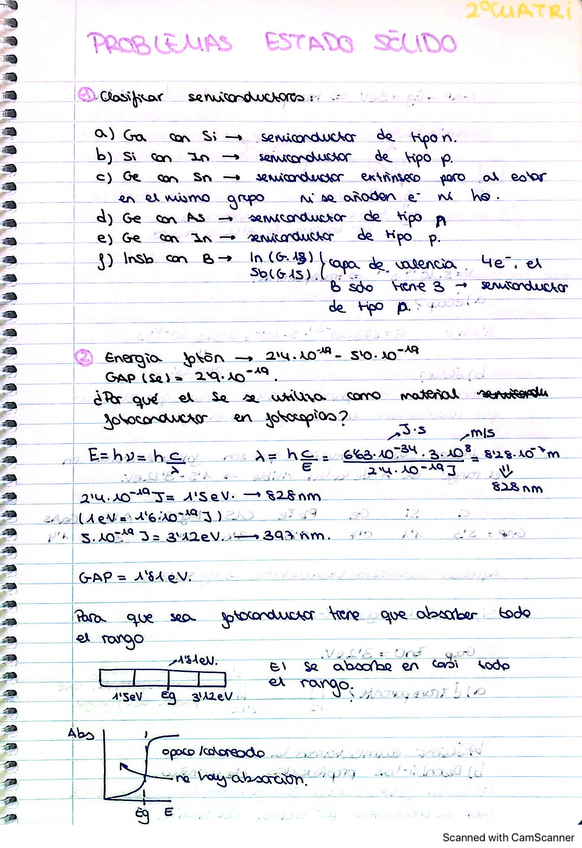 2º CUATRI
PROBLEMAS ESTADO SÓLIDO
1 Clasificar semiconductores:
a) Ga con Si → semiconductor de tipo n.
b) Si con In → semiconductor de tipo p.
c) Ge con Sn → semiconductor extrínseco pero al estar
en el mismo grupo ni se añaden e⁻ ni h⊕.
d) Ge con As → semiconductor de tipo n
e) Ge con In → semiconductor de tipo p.
f) InSb con B → In (G.13)
Sb (G.15)
capa de valencia 4e⁻, el
B solo tiene 3 → semiconductor
de tipo p.
2 Energía fotón → 2'4·10⁻¹⁹ - 5'0·10⁻¹⁹
GAP (Se) = 2'9·10⁻¹⁹.
¿Por qué el Se se utiliza como material
fotoconductor en fotocopias?
E = hν = h c/λ λ = h c/E = 6'63·10⁻³⁴ · 3·10⁸ / 2'4·10⁻¹⁹ J = 8'28·10⁻⁷ m
J·s
m/s
⇓
828 nm
2'4·10⁻¹⁹ J = 1'5 eV. → 828 nm
(1eV = 1'6·10⁻¹⁹ J)
5·10⁻¹⁹ J = 3'12 eV. → 397 nm.
GAP = 1'81 eV.
Para que sea fotoconductor tiene que absorber todo
el rango
1'81 eV.
1'5eV Eg 3'12eV
El Se absorbe en casi todo
el rango.
Abs
opaco/coloreado
no hay absorción.
Eg E
Scanned with CamScanner